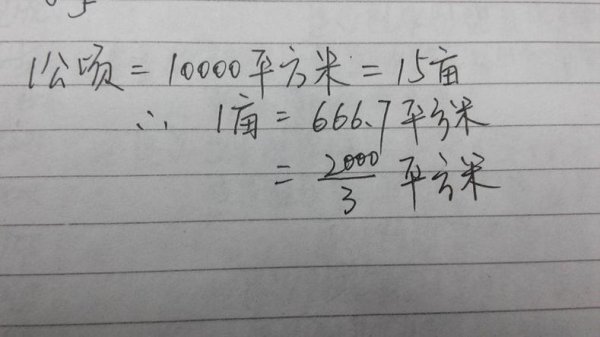 1公顷 = 10000平方米 = 15亩
∴ 1亩 = 666.7平方米
= 2000/3 平方米